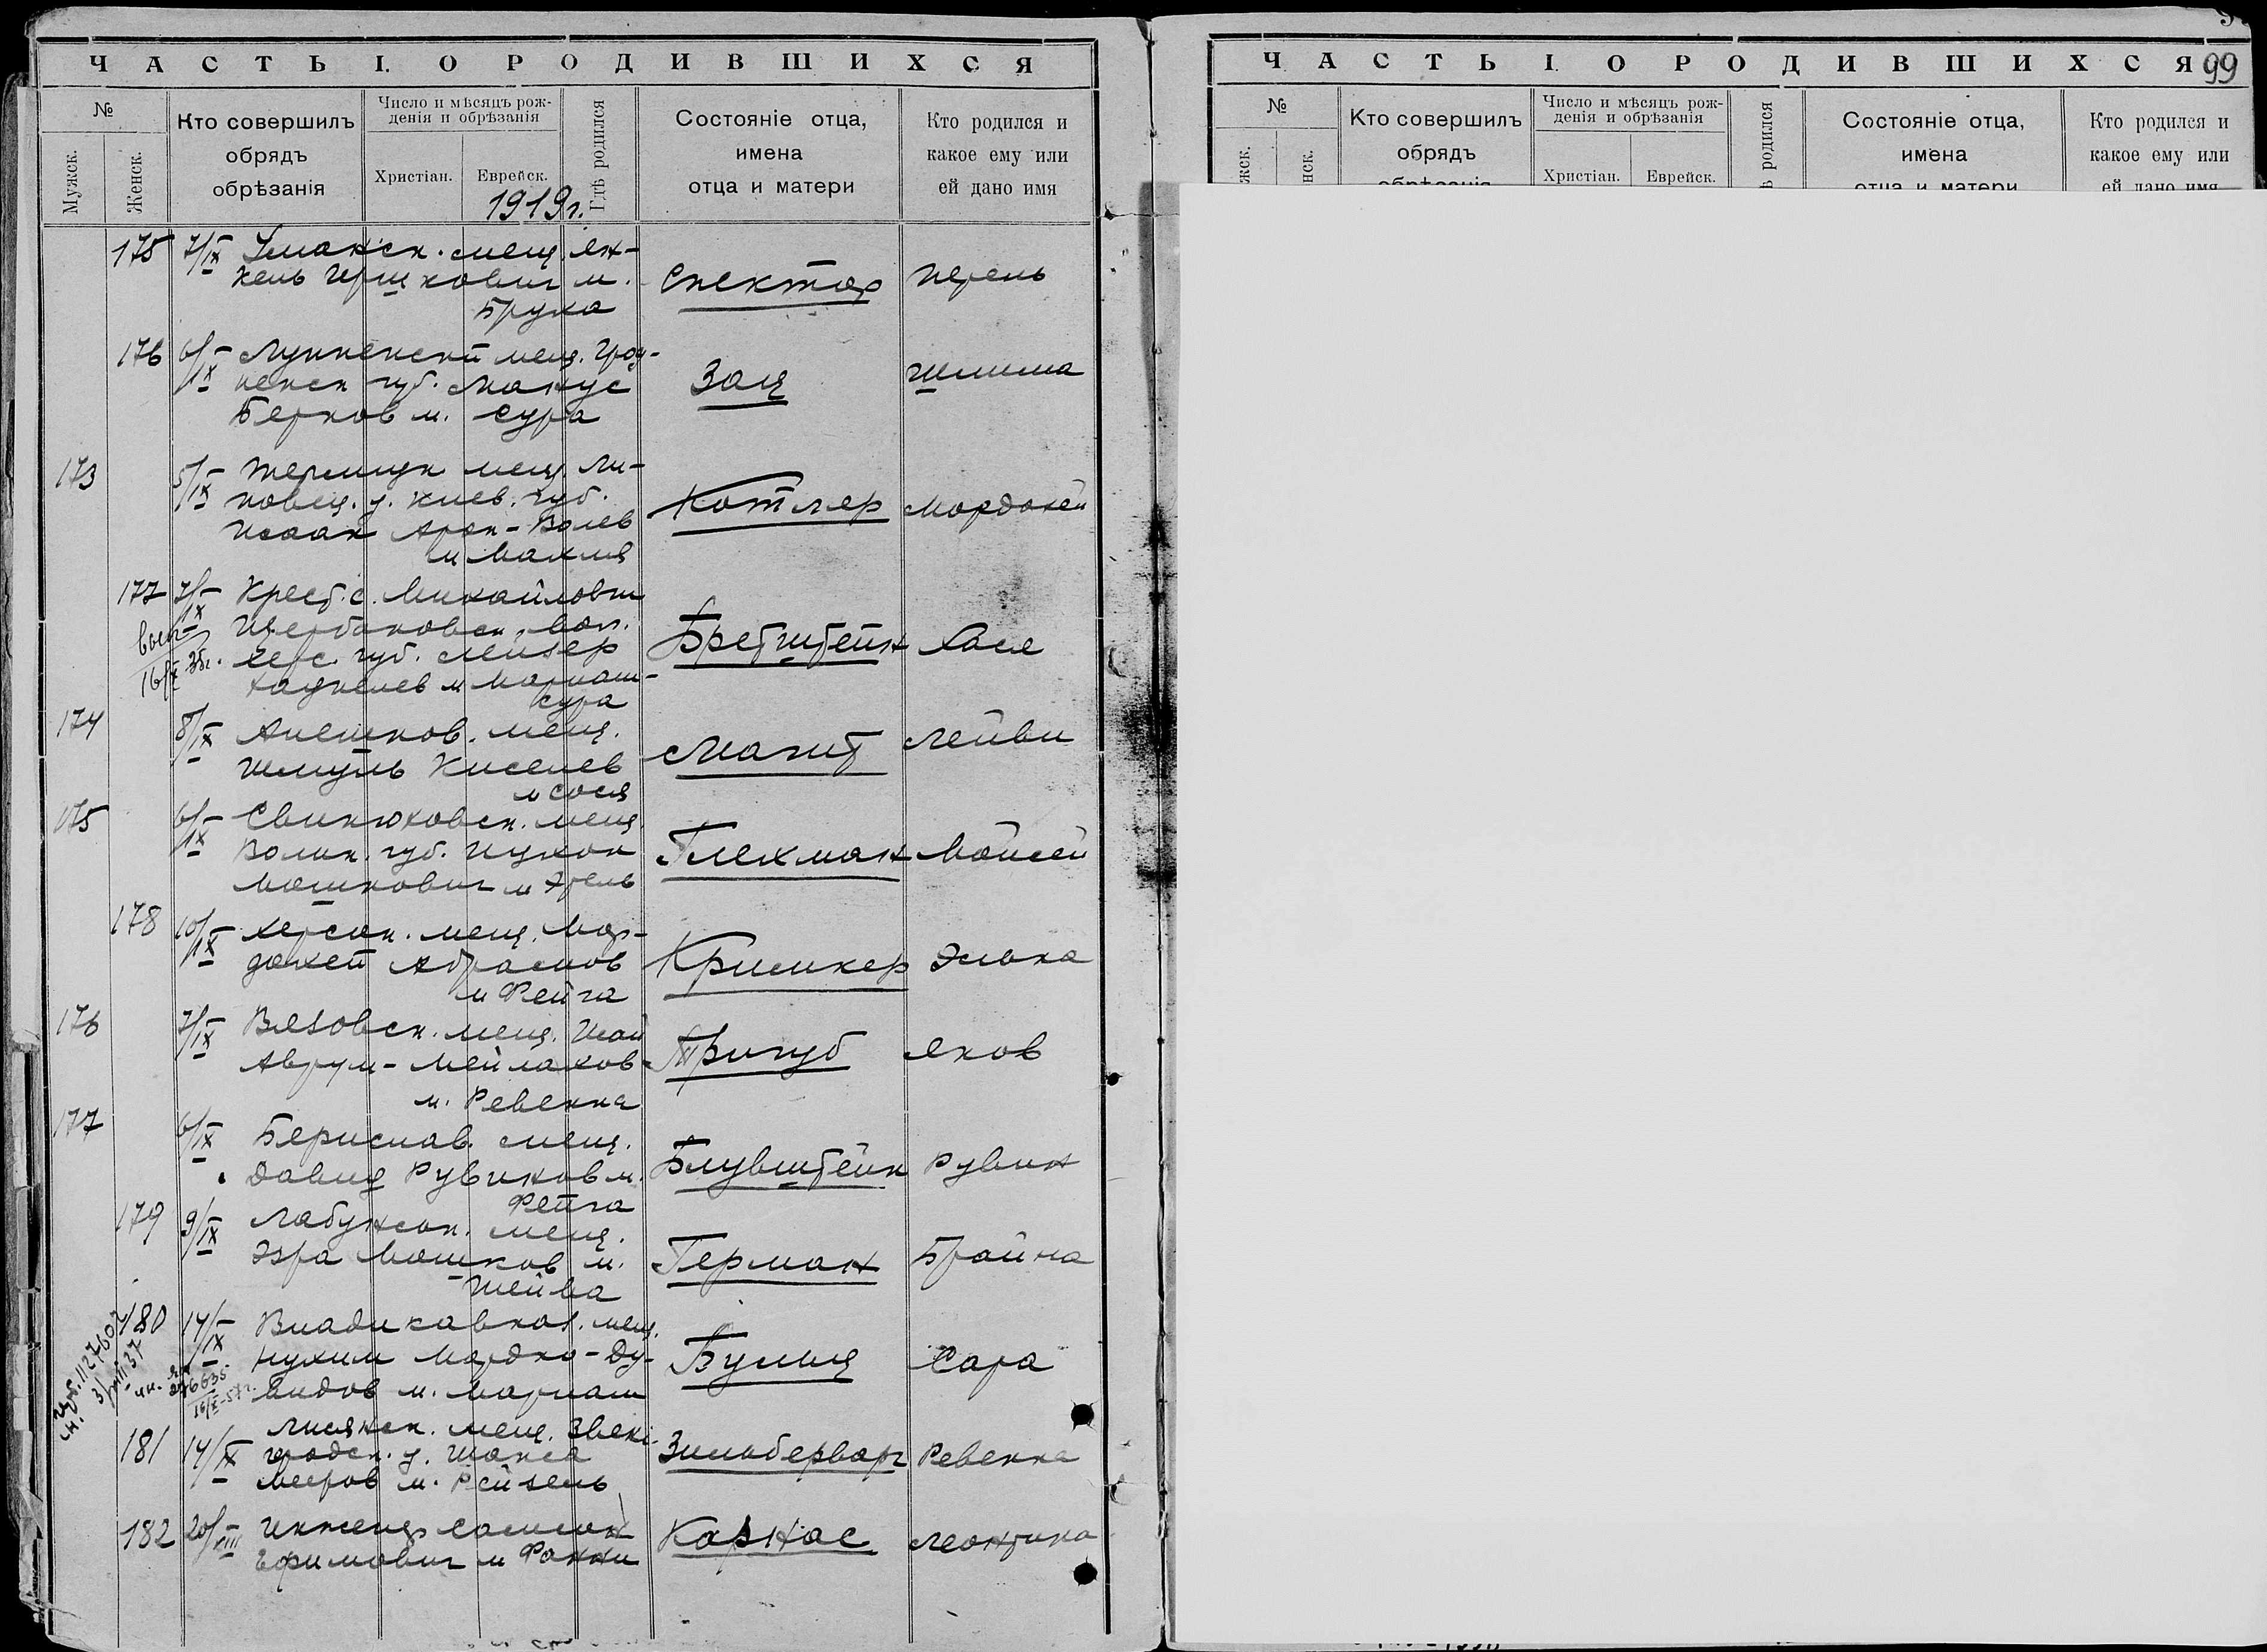 ЧАСТЬ I. О РОДИВШИХСЯ
№
Мужск.
Женск.
Кто совершилъ
обрядъ
обрѣзанія
Число и мѣсяцъ рож-
денія и обрѣзанія
Христіан.
Еврейск.
1919г.
Гдѣ родился
Состояніе отца,
имена
отца и матери
Кто родился и
какое ему или
ей дано имя
175 7/IX Уманск. мещ. Ян-
кель Гершкович м.
Брука
Спектор
Перель
176 6/IX мещ. Грод-
ненск губ. Манус
Берков м. Сура
Зац
173 5/IX мещ. Ли-
повец. у. Киев. губ.
Исаак Арон-Волев
м Махля
Котляр
Мордохей
177 7/IX Крест. с. Михайловки
Щербановск. вол.
Херс. губ. Лейзер
м Мариам-
Сура
16/X 35г.
Бретштейн
Хася
174 8/IX Алешков. мещ.
Шмуль Киселев
м Сося
Магит
Лейви
175 6/IX Свинюховск. мещ.
Волын. губ. Нухон
Мошкович м
Плехман
Мойсей
178 10/IX Херсон. мещ. Мор-
дохей Абрамов
м Фейга
Кримкер
Элька
176 7/IX мещ. Исай
Аврум-Мейлахов
м. Ревекка
Тригуб
Яков
177 6/IX Бериславв. мещ.
Давид Рувинов м.
Фейга
Блувштейн
Рувин
179 9/IX мещ.
Эзра Мошков м.
Шейва
Герман
Брайна
180 14/IX Владикавказ. мещ.
Нухим Мордко-Ду-
видов м. Мариам
Бумщ
Сара
181 14/IX Лисянск. мещ. Звени-
городск. у.
Мееров м. Рейзель
Зильберварг
Ревекка
182 20/VIII Инженер Самсон
Ефимович м Фанни
Карнас
Леонтина
ЧАСТЬ I. О РОДИВШИХСЯ
99
№
жск.
нск.
Кто совершилъ
обрядъ
обрѣзанія
Число и мѣсяцъ рож-
денія и обрѣзанія
Христіан.
Еврейск.
ѣ родился
Состояніе отца,
имена
отца и матери
Кто родился и
какое ему или
ей дано имя